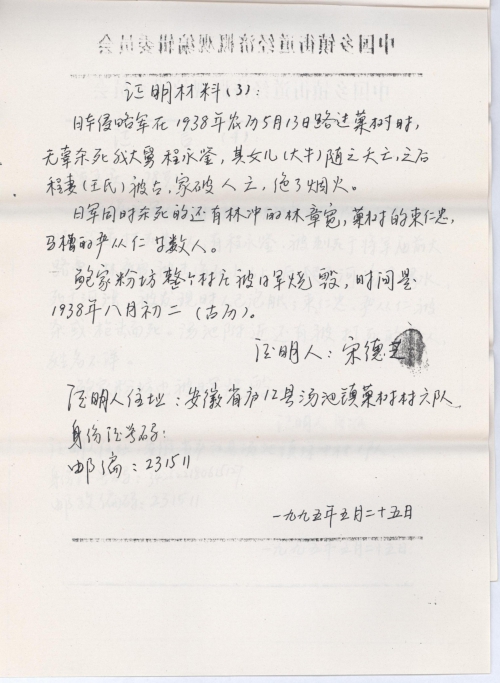 中国乡镇街道经济概观编辑委员会
证明材料(3):
日本侵略军在1938年农历5月13日路过菓树时,
无辜杀死我大舅程永鉴,其女儿(大牛)随之夭亡,之后
程妻(王氏)被占,家破人亡,绝了烟火。
日军同时杀死的还有林冲的林章宽,菓树的束仁忠,
马槽的尹从仁等数人。
鲍家粉坊整个村庄被日军烧毁,时间是
1938年八月初二(古历)。
证明人:宋德
证明人住址:安徽省庐江县汤池镇菓树村六队
身份证号码:
邮编:231511
一九九五年五月二十五日